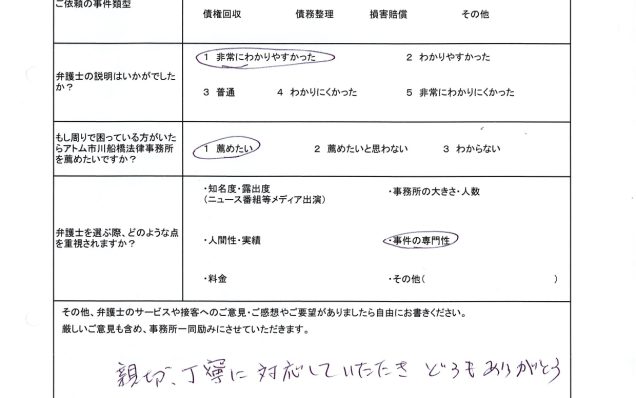 ご依頼の事件類型
債権回収 債務整理 損害賠償 その他
弁護士の説明はいかがでしたか?
1 非常にわかりやすかった 2 わかりやすかった
3 普通 4 わかりにくかった 5 非常にわかりにくかった
もし周りで困っている方がいたらアトム市川船橋法律事務所を薦めたいですか?
1 薦めたい 2 薦めたいと思わない 3 わからない
弁護士を選ぶ際、どのような点を重視されますか?
・知名度・露出度 ・事務所の大きさ・人数
(ニュース番組等メディア出演)
・人間性・実績 ・事件の専門性
・料金 ・その他( )
その他、弁護士のサービスや接客へのご意見・ご感想やご要望がありましたら自由にお書きください。
厳しいご意見も含め、事務所一同励みにさせていただきます。
親切、丁寧に対応していただき どうもありがとう